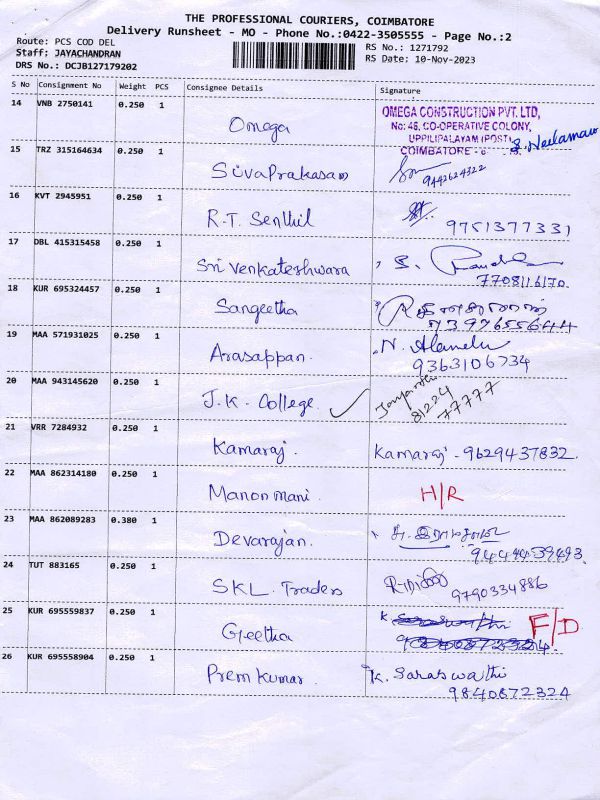 THE PROFESSIONAL COURIERS, COIMBATORE
Delivery Runsheet - MO - Phone No.:0422-3505555 - Page No.:2
Route: PCS COD DEL
RS No.: 1271792
Staff: JAYACHANDRAN
RS Date: 10-Nov-2023
DRS No.: DCJB127179202
S No Consignment No Weight PCS Consignee Details Signature
14 VNB 2750141 0.250 1 Omega
OMEGA CONSTRUCTION PVT. LTD,
No: 45, CO-OPERATIVE COLONY,
UPPILIPALAYAM (POST),
COIMBATORE
15 TRZ 315164634 0.250 1 SivaPrakasam
9442624322
16 KVT 2945951 0.250 1 R.T. Senthil
9751377331
17 DBL 415315458 0.250 1 Sri Venkateshwara
7708116170
18 KUR 695324457 0.250 1 Sangeetha
7397655644
19 MAA 571931025 0.250 1 Arasappan. N. Alamelu
9363106734
20 MAA 943145620 0.250 1 J.K. College
81224
77777
21 VRR 7284932 0.250 1 Kamaraj. Kamaraj - 9629437832.
22 MAA 862314180 0.250 1 Manonmani. H/R
23 MAA 862089283 0.380 1 Devarajan.
24 TUT 883165 0.250 1 SKL Traders
9790334886
25 KUR 695559837 0.250 1 Geetha F/D
26 KUR 695558904 0.250 1 Prem Kumar. K. Saraswathi
9840872324